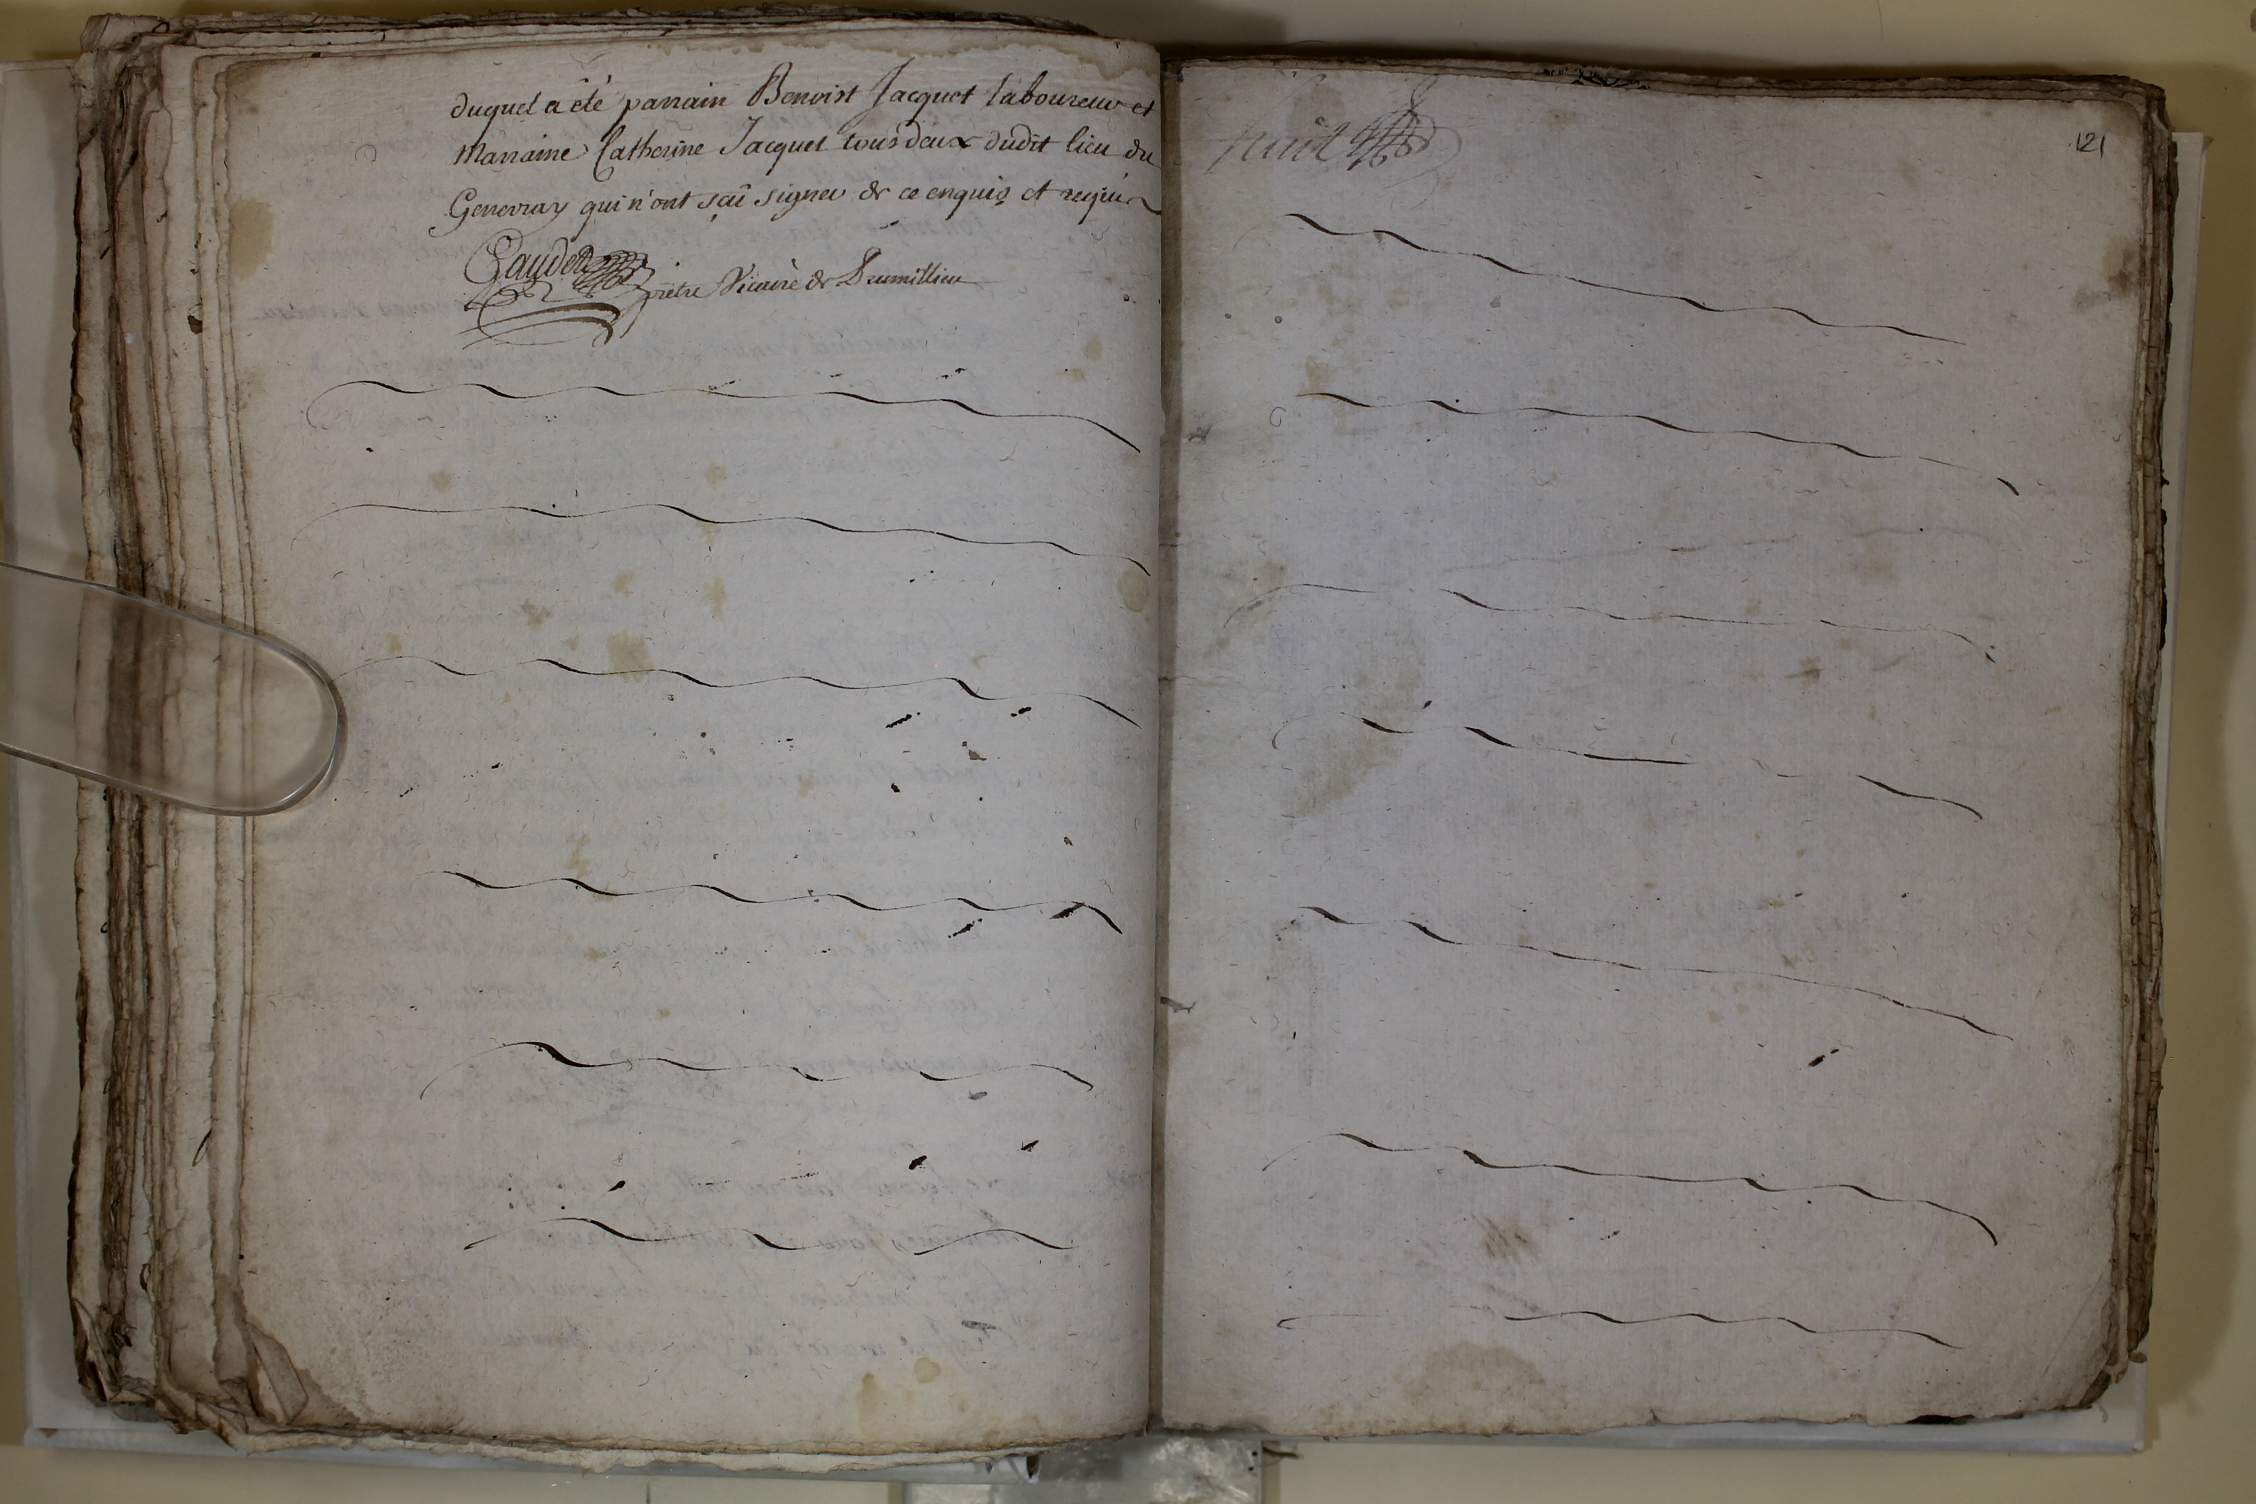 duquel a été parrain Benoist Jacquet laboureur et
Marraine Catherine Jacquet tous deux dudit lieu du
Genevray qui n'ont sçû signer de ce enquis et requis
prêtre Vicaire de Drumillieu
huit
121